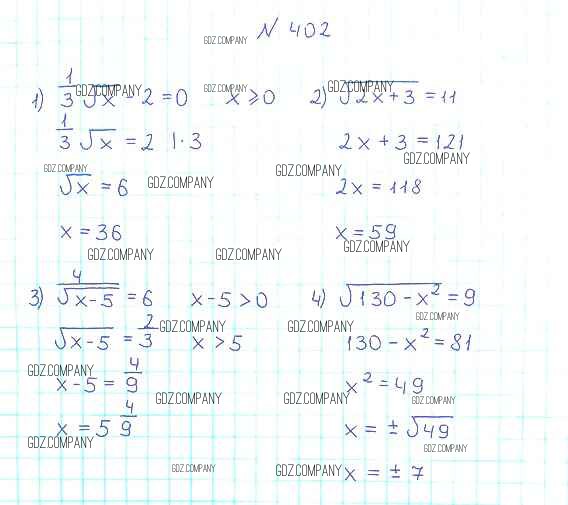 № 402
GDZ.COMPANY
1) 1/3 √x - 2 = 0    x ⩾ 0
GDZ.COMPANY GDZ.COMPANY
1/3 √x = 2 | · 3
GDZ.COMPANY
√x = 6
GDZ.COMPANY
x = 36
GDZ.COMPANY GDZ.COMPANY
2) √(2x + 3) = 11
GDZ.COMPANY
2x + 3 = 121
GDZ.COMPANY
GDZ.COMPANY
2x = 118
x = 59
GDZ.COMPANY
3) 4/√(x - 5) = 6    x - 5 > 0
√(x - 5) = 2/3    x > 5
GDZ.COMPANY
GDZ.COMPANY
x - 5 = 4/9
GDZ.COMPANY
x = 5 4/9
GDZ.COMPANY
GDZ.COMPANY
4) √(130 - x²) = 9
GDZ.COMPANY
GDZ.COMPANY
130 - x² = 81
x² = 49
GDZ.COMPANY GDZ.COMPANY
x = ± √49
GDZ.COMPANY
GDZ.COMPANY
x = ± 7